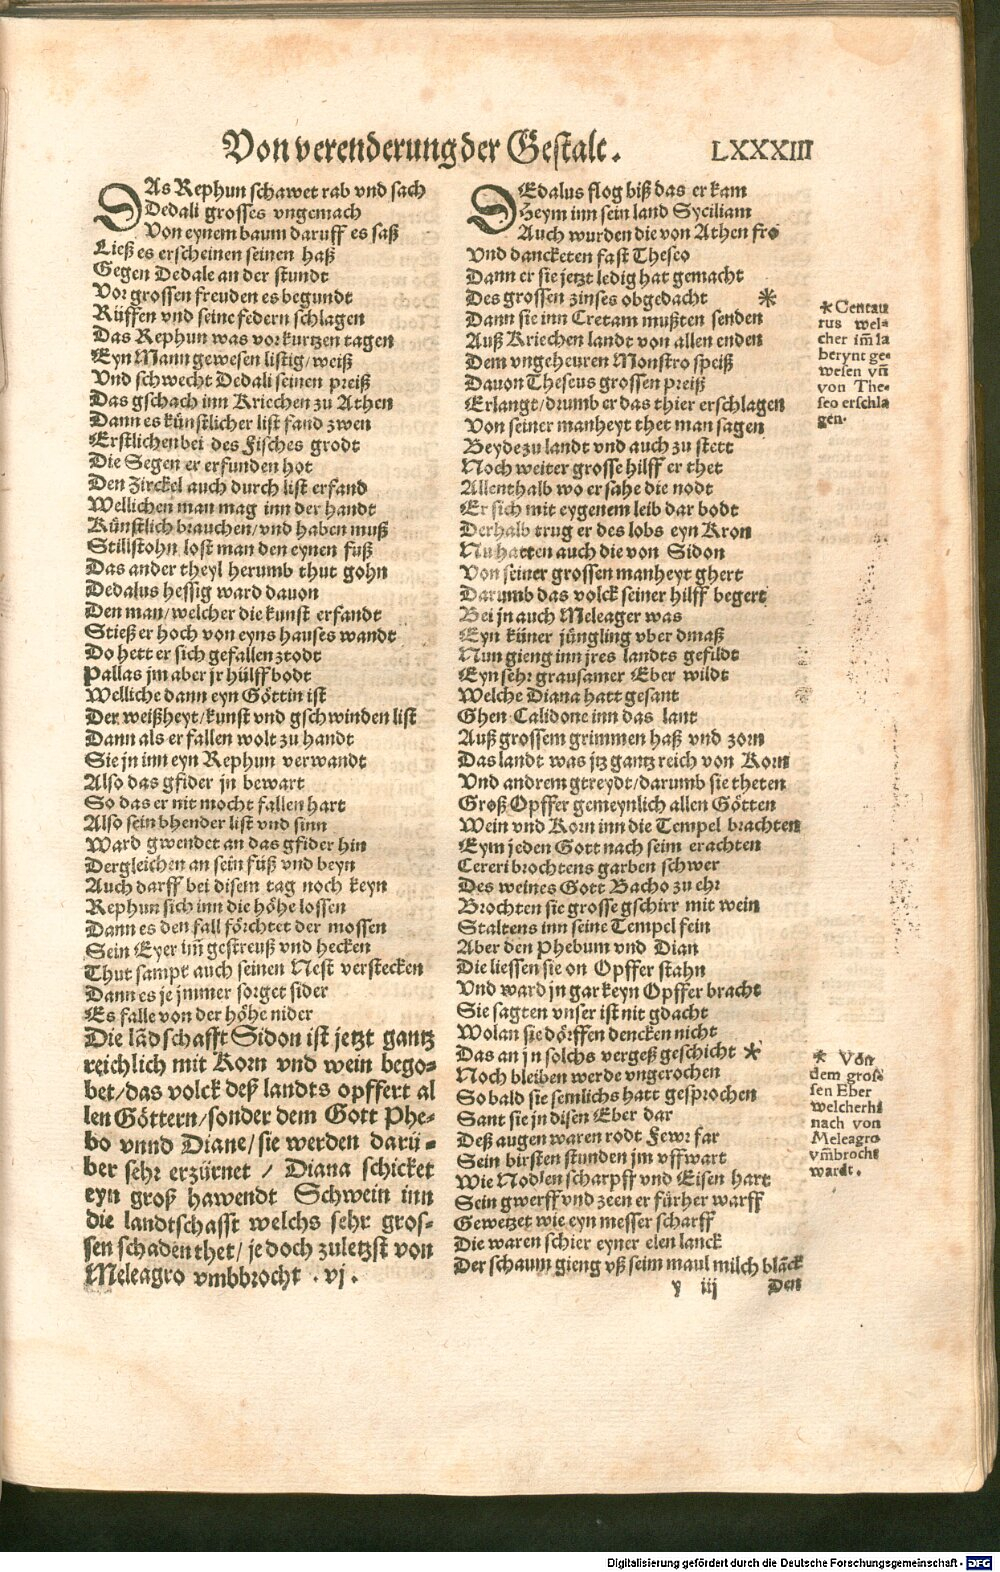 Von verenderung der Gestalt. LXXXIII
DAs Rephun schawet rab vnd sach
Dedali grosses vngemach
Von eynem baum daruff es saß
Ließ es erscheinen seinen haß
Gegen Dedale an der stundt
Vor grossen freuden es begundt
Rüffen vnd seine federn schlagen
Das Rephun was vor kurtzen tagen
Eyn Mann gewesen listig/weiß
Vnd schwecht Dedali seinen preiß
Das gschach inn Kriechen zu Athen
Dann es künstlicher list fand zwen
Erstlichen bei des Fisches grodt
Die Segen er erfunden hot
Den Zirckel auch durch list erfand
Wellichen man mag inn der handt
Künstlich brauchen/vnd haben muß
Stillstohn lost man den eynen fuß
Das ander theyl herumb thut gohn
Dedalus hessig ward dauon
Den man/welcher die kunst erfandt
Stieß er hoch von eyns hauses wandt
Do hett er sich gefallen ztodt
Pallas jm aber jr hülff bodt
Welliche dann eyn Göttin ist
Der weißheyt/kunst vnd gschwinden list
Dann als er fallen wolt zu handt
Sie jn inn eyn Rephun verwandt
Also das gfider jn bewart
So das er nit mocht fallen hart
Also sein bhender list vnd sinn
Ward gwendet an das gfider hin
Dergleichen an sein füß vnd beyn
Auch darff bei disem tag noch keyn
Rephun sich inn die höhe lossen
Dann es den fall förchtet der mossen
Sein Eyer im̃ gestreuß vnd hecken
Thut sampt auch seinen Nest verstecken
Dann es je jmmer sorget sider
Es falle von der höhe nider
Die lādschafft Sidon ist jetzt gantz
reichlich mit Korn vnd wein bego-
bet/das volck deß landts opffert al
len Göttern/sonder dem Gott Phe-
bo vnnd Diane/sie werden darü-
ber sehr erzürnet / Diana schicket
eyn groß hawendt Schwein inn
die landtschafft welchs sehr gros-
sen schaden thet/ je doch zuletzst von
Meleagro vmbbrocht . vj .
DEdalus flog biß das er kam
Heym inn sein land Syciliam
Auch wurden die von Athen fro
Vnd dancketen fast Theseo
Dann er sie jetzt ledig hat gemacht
Des grossen zinses obgedacht *
Dann sie inn Cretam mußten senden
Auß Kriechen landt von allen enden
Dem vngeheuren Monstro speiß
Dauon Theseus grossen preiß
Erlangt/drumb er das thier erschlagen
Von seiner manheyt thet man sagen
Beyde zu landt vnd auch zu stett
Noch weiter grosse hilff er thet
Allenthalb wo er sahe die nodt
Er sich mit eygenem leib dar bodt
Derhalb trug er des lobs eyn Kron
Nu hatten auch die von Sidon
Von seiner grossen manheyt ghert
Darumb das volck seiner hilff begert
Bei jn auch Meleager was
Eyn küner jüngling vber dmaß
Nun gieng inn jres landts gefildt
Eyn sehr grausamer Eber wildt
Welche Diana hatt gesant
Ghen Calidone inn das lant
Auß grossem grimmen haß vnd zorn
Das landt was jtz gantz reich von Korn
Vnd andrem gtreydt/darumb sie theten
Groß Opffer gemeynlich allen Götten
Wein vnd Korn inn die Tempel brachten
Eym jeden Gott nach seim erachten
Cereri brochtens garben schwer
Des weines Gott Bacho zu ehr
Brochten sie grosse gschirr mit wein
Staltens inn seine Tempel fein
Aber den Phebum vnd Dian
Die liessen sie on Opffer stahn
Vnd ward jn gar keyn Opffer bracht
Sie sagten vnser ist nit gdacht
Wolan sie dörffen dencken nicht
Das an jn solchs vergeß geschicht *
Noch bleiben werde vngerochen
So bald sie semlichs hatt gesprochen
Sant sie jn disen Eber dar
Deß augen waren rodt Fewr far
Sein birsten stunden jm vffwart
Wie Nodlen scharpff vnd Eisen hart
Sein gwerff vnd zeen er fürher warff
Gewetzet wie eyn messer scharff
Die waren schier eyner elen lanck
Der schaum gieng vß seim maul milch blāck
* Centau
rus wel-
cher im̃ la
berynt ge-
wesen vn̄
von The-
seo erschla
gen.
* Von
dem gros-
sen Eber
welcher hi
nach von
Meleagro
vm̄brocht
wardt.
y iij Den
Digitalisierung gefördert durch die Deutsche Forschungsgemeinschaft - DFG